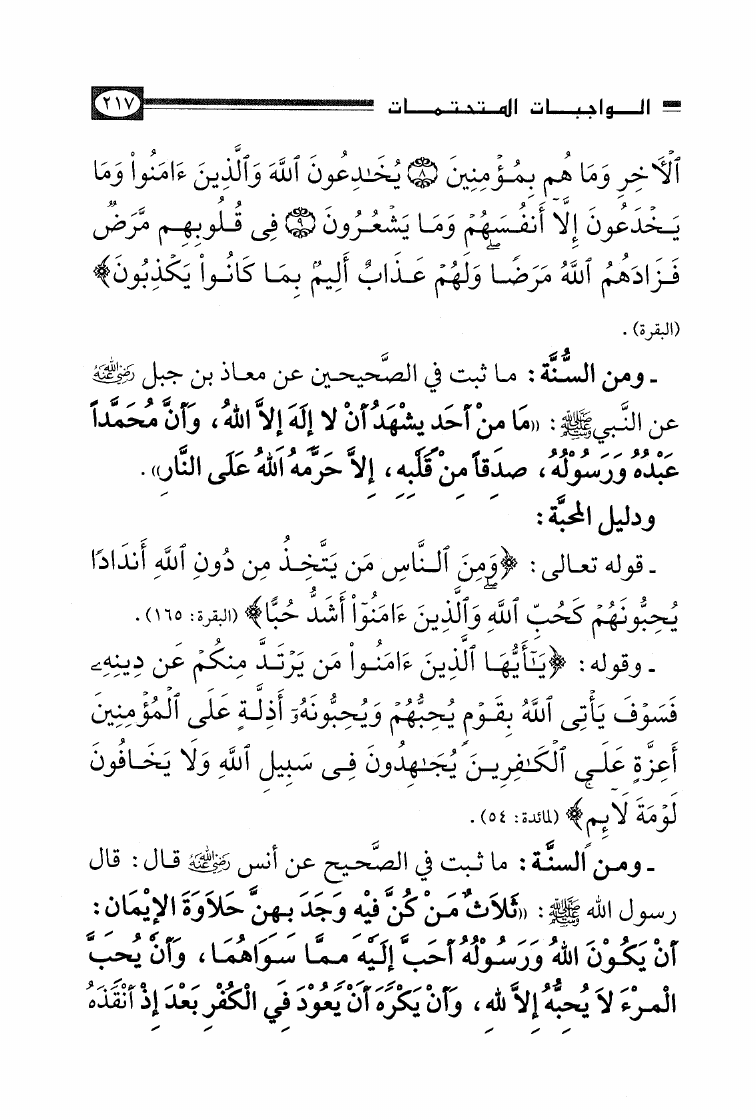 الـــواجبـــات المـتحتـمـــات ٢١٧
ٱلْأَخِرِ وَمَا هُم بِمُؤْمِنِينَ ۝٨ يُخَٰدِعُونَ ٱللَّهَ وَٱلَّذِينَ ءَامَنُوا۟ وَمَا
يَخْدَعُونَ إِلَّآ أَنفُسَهُمْ وَمَا يَشْعُرُونَ ۝٩ فِى قُلُوبِهِم مَّرَضٌ
فَزَادَهُمُ ٱللَّهُ مَرَضًا ۖ وَلَهُمْ عَذَابٌ أَلِيمٌۢ بِمَا كَانُوا۟ يَكْذِبُونَ﴾
(البقرة) .
ـ ومن السُّنَّة : ما ثبت في الصَّحيحين عن معاذ بن جبل رضي الله عنه
عن النَّبي ﷺ : «مَا مِنْ أَحَدٍ يشْهَدُ أَنْ لا إِلَهَ إِلاَّ اللهُ ، وَأَنَّ مُحَمَّداً
عَبْدُهُ وَرَسُولُهُ ، صِدْقاً مِنْ قَلْبِهِ ، إِلاَّ حَرَّمَهُ اللهُ عَلَى النَّارِ» .
ودليل المحبَّة :
ـ قوله تعالى : ﴿وَمِنَ ٱلنَّاسِ مَن يَتَّخِذُ مِن دُونِ ٱللَّهِ أَندَادًا
يُحِبُّونَهُمْ كَحُبِّ ٱللَّهِ ۖ وَٱلَّذِينَ ءَامَنُوٓا۟ أَشَدُّ حُبًّا﴾ (البقرة: ١٦٥) .
ـ وقوله : ﴿يَٰٓأَيُّهَا ٱلَّذِينَ ءَامَنُوا۟ مَن يَرْتَدَّ مِنكُمْ عَن دِينِهِۦ
فَسَوْفَ يَأْتِى ٱللَّهُ بِقَوْمٍ يُحِبُّهُمْ وَيُحِبُّونَهُۥٓ أَذِلَّةٍ عَلَى ٱلْمُؤْمِنِينَ
أَعِزَّةٍ عَلَى ٱلْكَٰفِرِينَ يُجَٰهِدُونَ فِى سَبِيلِ ٱللَّهِ وَلَا يَخَافُونَ
لَوْمَةَ لَآئِمٍ ۚ﴾ (لمائدة: ٥٤) .
ـ ومـن السنَّـة : ما ثبـت في الصَّحيح عن أنس رضي الله عنه قال : قال
رسول الله ﷺ : «ثَلاَثٌ مَنْ كُنَّ فِيْهِ وَجَدَ بِهِنَّ حَلاَوَةَ الإِيْمَانِ :
أَنْ يَكُوْنَ اللهُ وَرَسُوْلُهُ أَحَبَّ إِلَيْهِ مِمَّا سَوَاهُمَا ، وَأَنْ يُحِبَّ
الْمَرْءَ لاَ يُحِبُّهُ إِلاَّ لِلهِ ، وَأَنْ يَكْرَهَ أَنْ يَعُوْدَ فِي الْكُفْرِ بَعْدَ إِذْ أَنْقَذَهُ